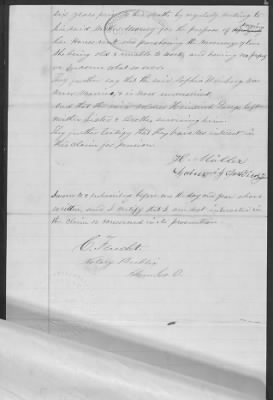 six years prior to his death by regularly sending to
his said mother money for the purpose of paying
her House rent and purchasing the necessaries of live
She being old & unable to work and having no property
or Income what so ever.
They further say that the said Sophia Denburg was
never Married, & is now unmarried.
And that the said soldier Hermann Denburg left
neither sister & brother surviving him.
They further testify that they have no interest in
this Claim for pension.
H. Müller
Sworn to & subscribed before me the day and year above
written and I certify that I am not interested in
the claim or concerned in its prosecution
C. Fecht
Notary Public
Ohio